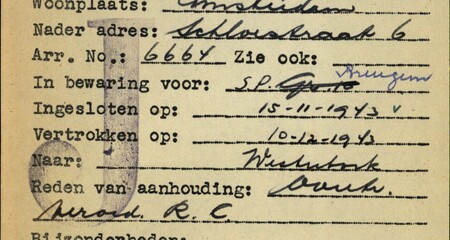 Woonplaats: Amsterdam
Nader adres: Schloestraat 6
Arr. No.: 6664 Zie ook:
In bewaring voor: S.P.
Ingesloten op: 15-11-1943 v
Vertrokken op: 10-12-1943
Naar: Westerbork
Reden van aanhouding:
R. C.
Bijzonderheden:
J